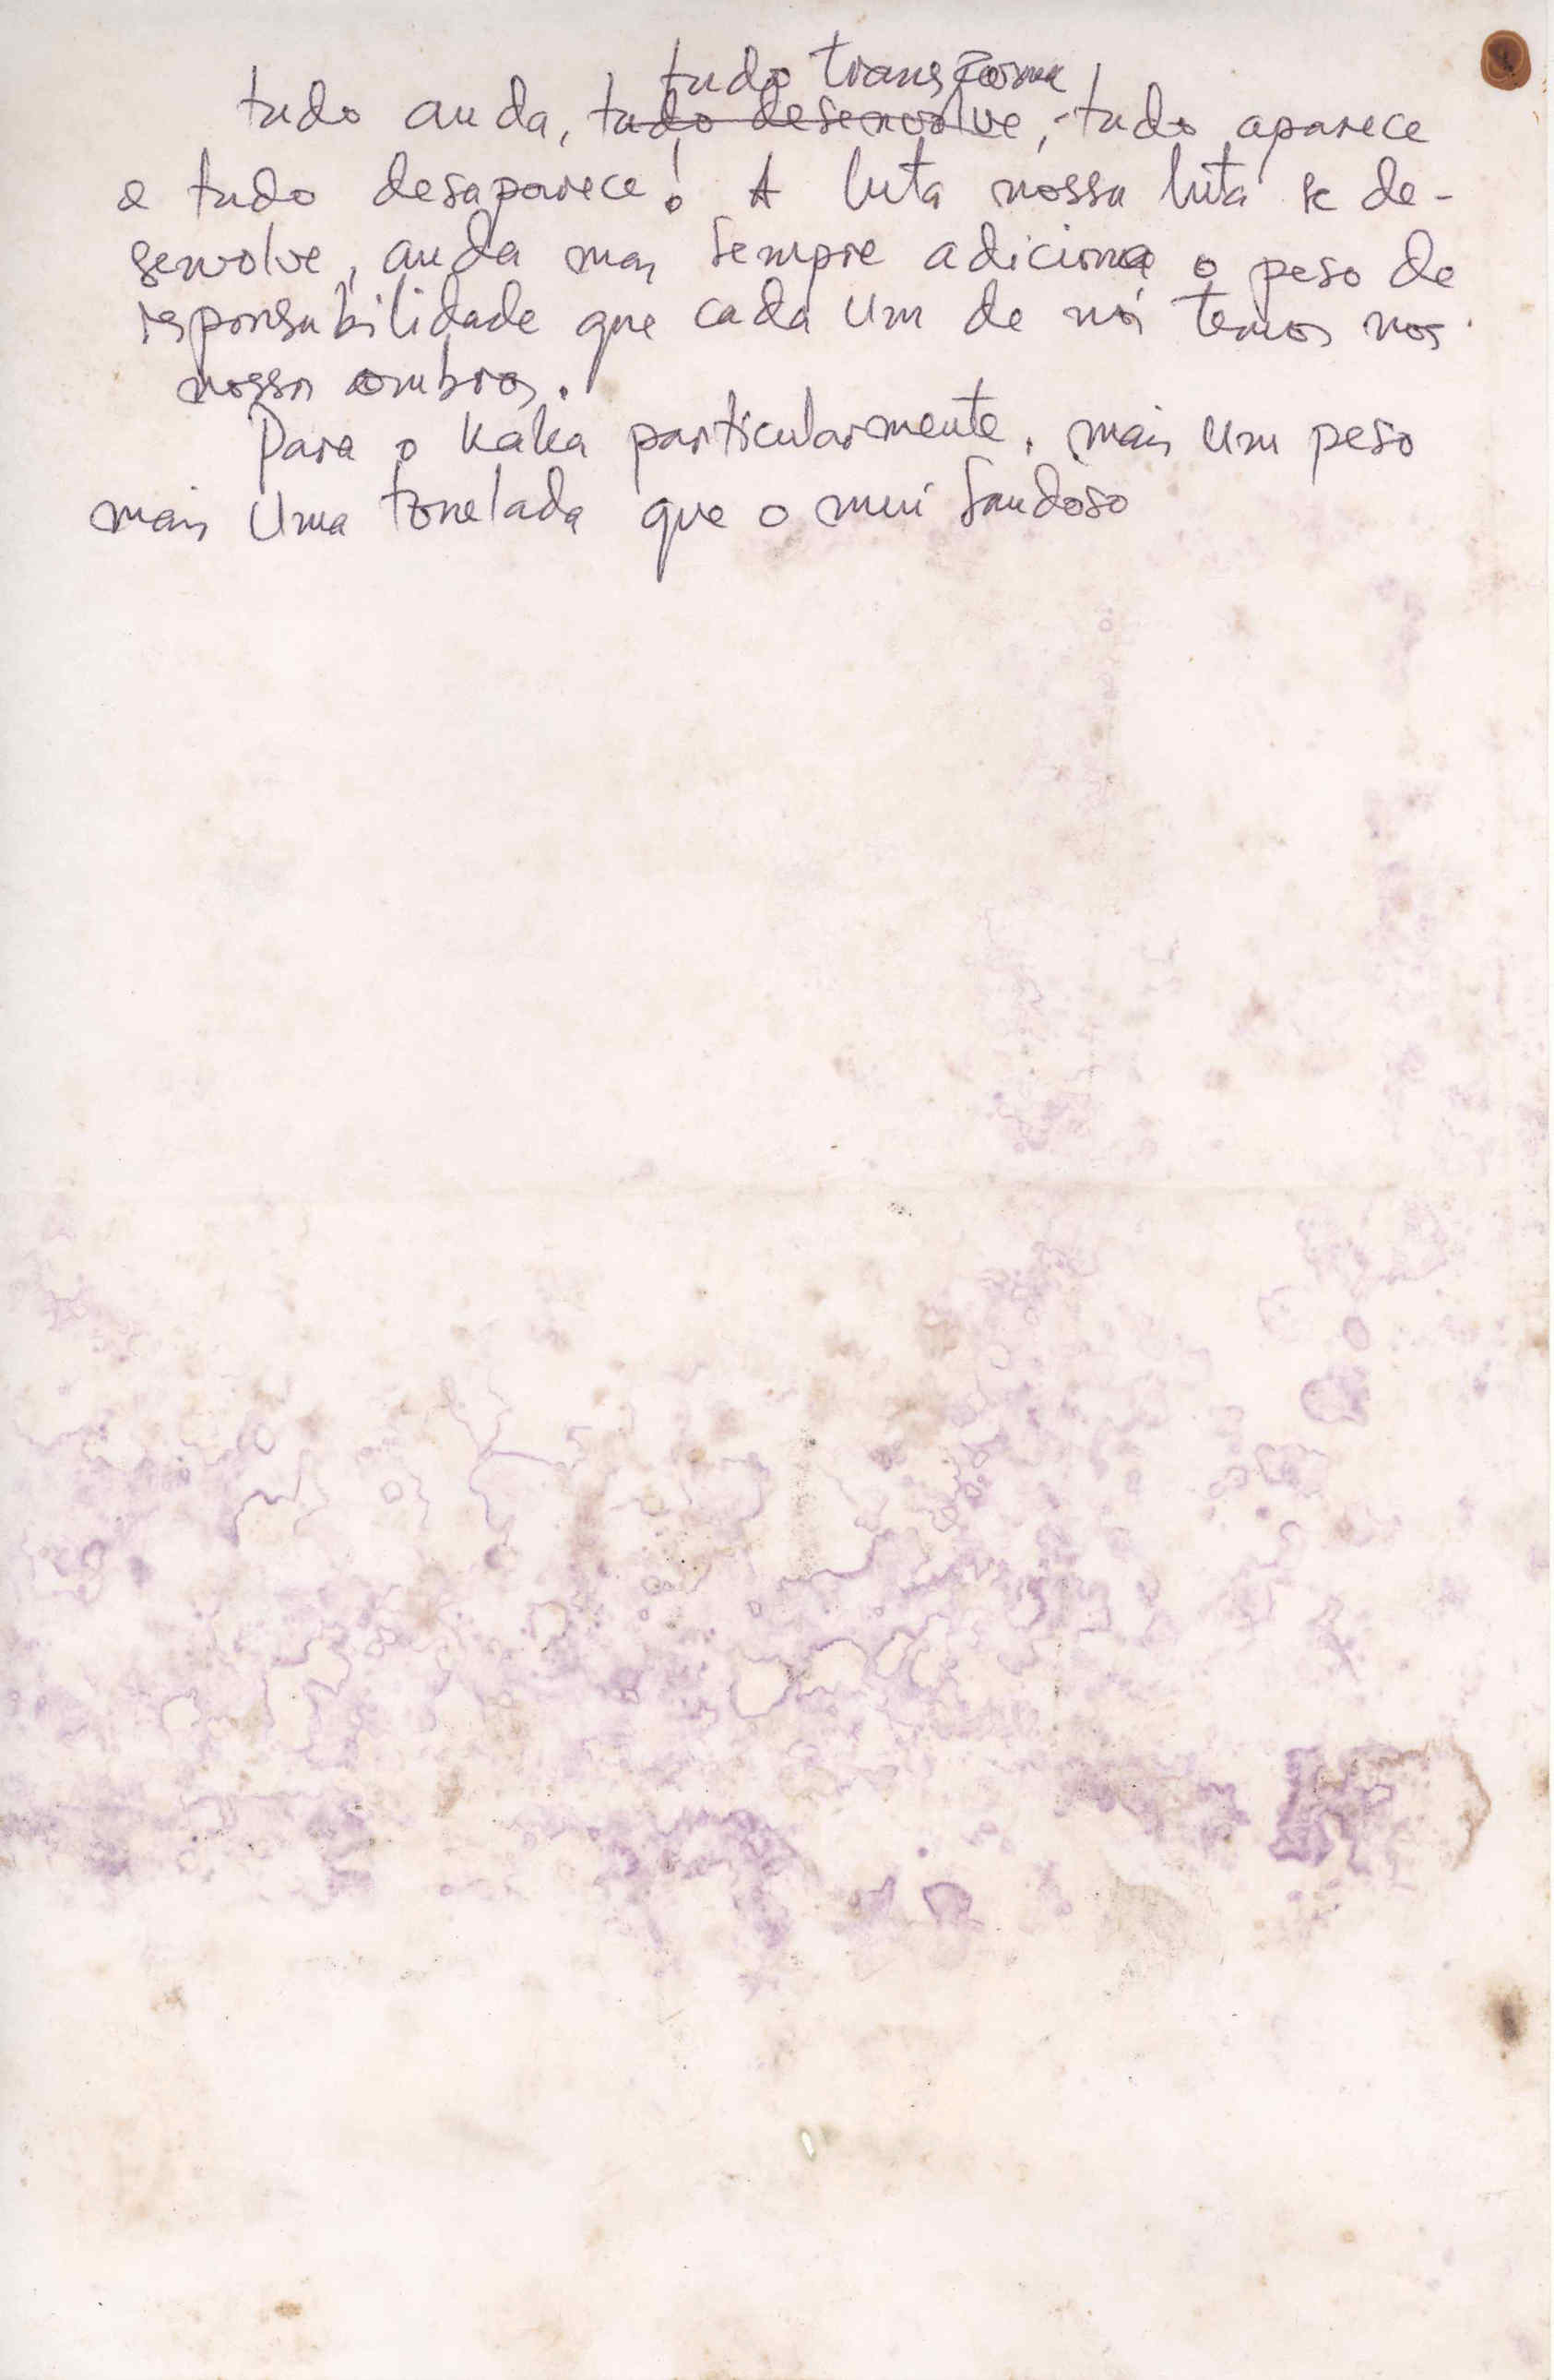 tudo transforma
tudo anda, tudo desenvolve, tudo aparece
e tudo desaparece! A luta nossa luta se de-
senvolve, anda mas sempre adiciona o peso de
responsabilidade que cada um de nós temos nos
nossos ombros.
Para o Kaka particularmente, mais um peso
mais uma tonelada que o mui saudoso